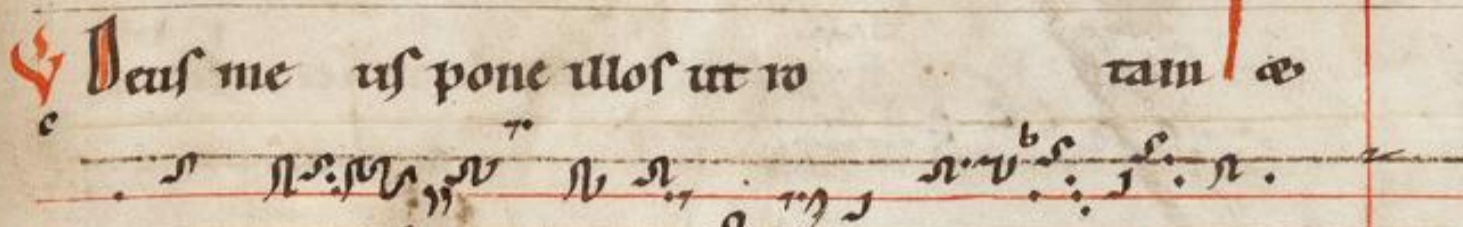 V Deuſ me uſ pone illoſ ut ro tam æ
c
b